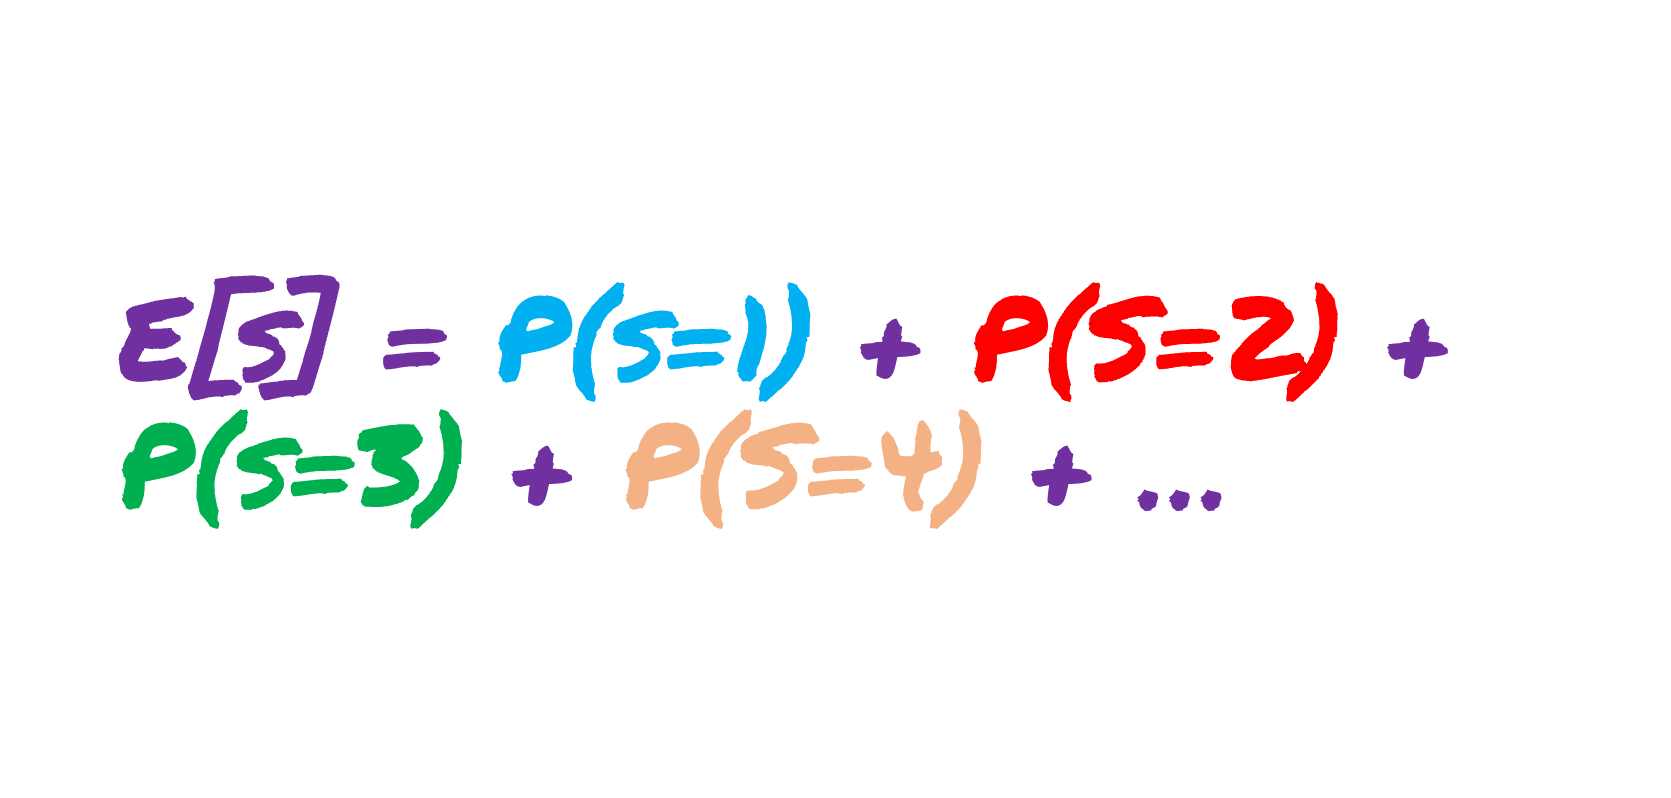 E[s] = P(s=1) + P(S=2) +
P(s=3) + P(S=4) + ...